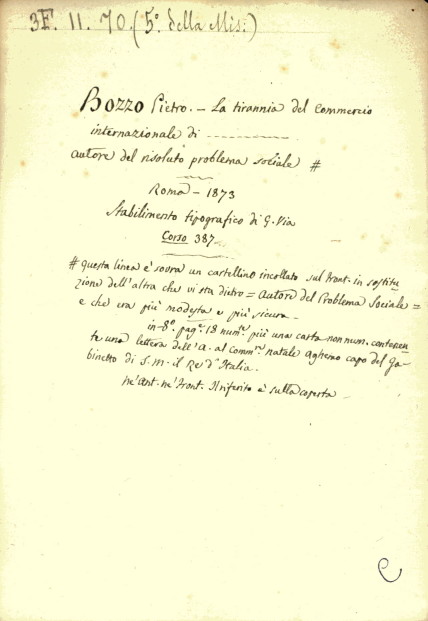 3F. 11. 70. (5º della Mis:)
Bozzo Pietro. – La tirannia del commercio
internazionale di
autore del risoluto problema sociale #
Roma – 1873
Stabilimento tipografico di G. Via
Corso 387
# questa linea è sovra un cartellino incollato sul front. in sostitu
zione dell'altra che vi sta dietro = Autore del Problema Sociale =
e che era più modesta e più sicura –
in-8º. pagᵉ. 18 numᵗᵉ. più una carta non num. contenen
te una lettera dell'A. al commʳᵉ natale Aghemo capo del Ga-
binetto di S. M. il Re d'Italia.
Nè Ant. nè Front. Il riferito è sulla coperta –